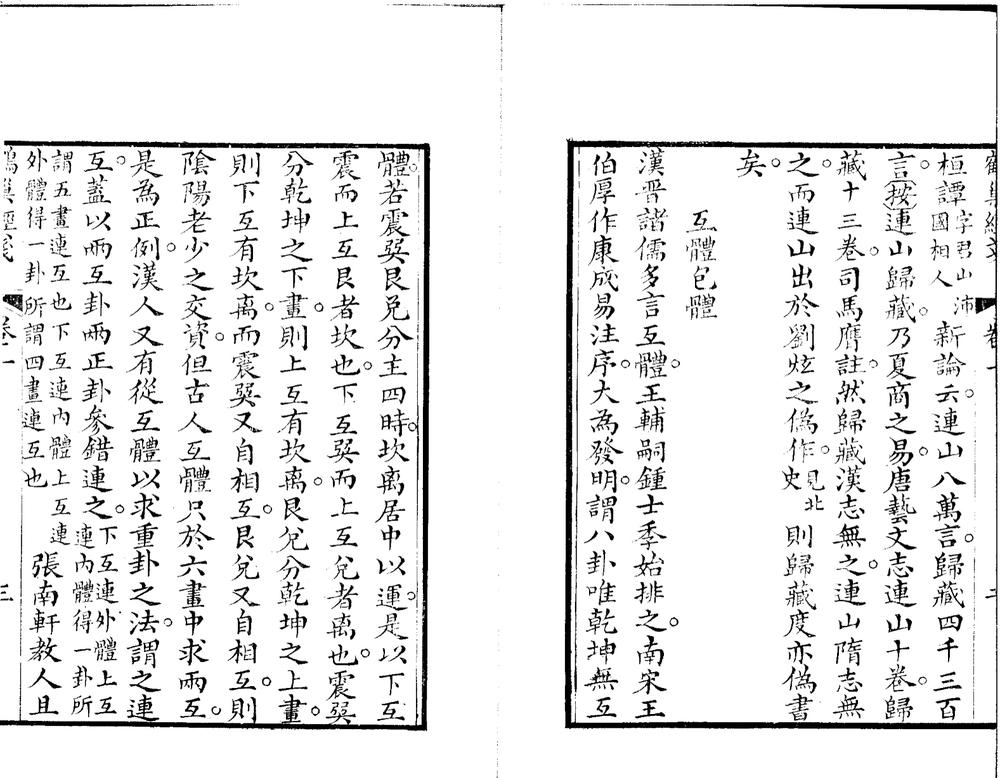 桓譚字君山沛國相人新論云。連山八萬言。歸藏四千三百
言。按連山歸藏。乃夏商之易。唐藝文志連山十卷。歸
藏十三卷。司馬膺註。然歸藏漢志無之。連山隋志無
之。而連山出於劉炫之偽作。見北史則歸藏度亦偽書
矣。
互體包體
漢晉諸儒多言互體。王輔嗣鍾士季始排之。南宋王
伯厚作康成易注序。大為發明。謂八卦唯乾坤無互
體。若震巽艮兌分主四時。坎离居中以運。是以下互
震而上互艮者坎也。下互巽而上互兌者离也。震巽
分乾坤之下畫。則上互有坎离。艮兌分乾坤之上畫。
則下互有坎离。而震巽又自相互。艮兌又自相互。則
陰陽老少之交資。但古人互體。只於六畫中求兩互。
是為正例。漢人又有從互體以求重卦之法。謂之連
互。蓋以兩互卦兩正卦參錯連之。下互連外體上互連內體得一卦所
謂五畫連互也下互連內體上互連外體得一卦所謂四畫連互也張南軒教人且